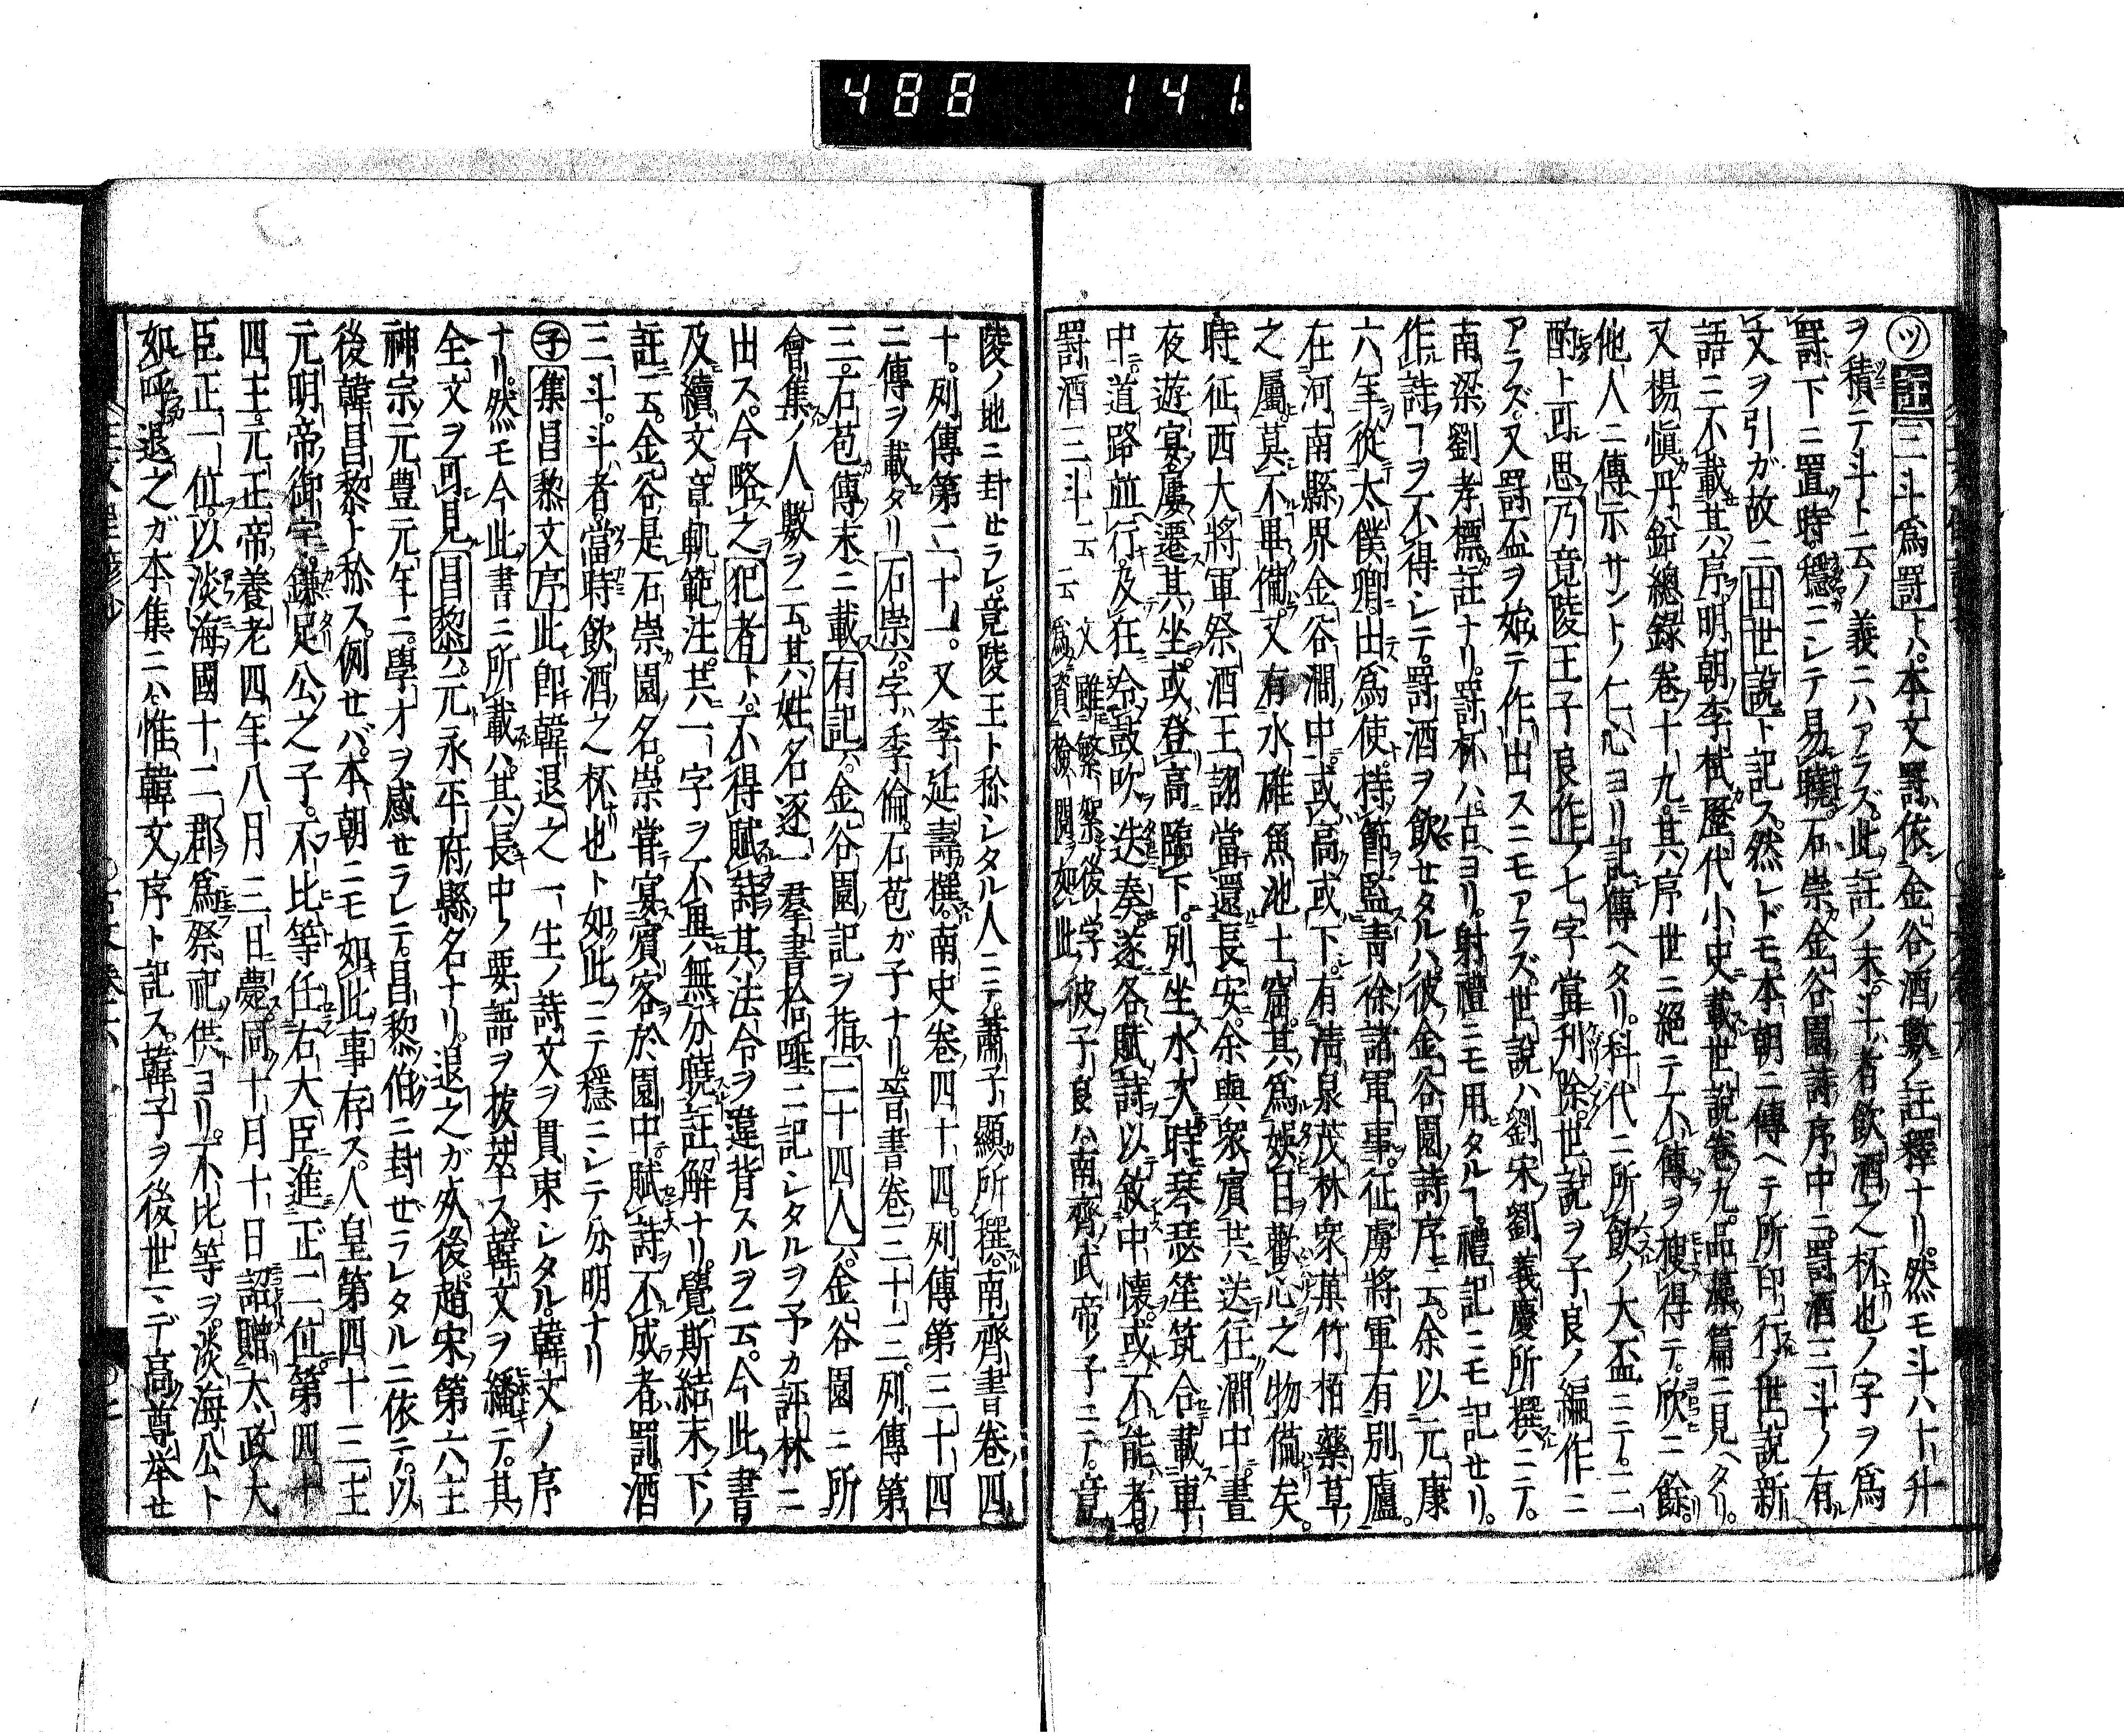 488 141.
㋡註三斗爲罸トハ本文罸依金谷酒數ノ註釋ナリ。然モ斗ハ十升
ヲ積テ斗ト云ノ義ニハアラズ。此註ノ末。斗者飲酒之杯也ノ字ヲ爲
罸下ニ置時穩ニシテ易曉。石崇金谷園詩序中ニ。罸酒三斗ノ有
文ヲ引ガ故ニ出世說ト記ス。然レドモ本朝ニ傳ヘテ所印行ノ世說新
語ニ不載其序。明朝李栻歷代小史載世說卷九。品藻篇ニ見ヘタリ。
又揚愼丹鉛總錄卷十九其序世ニ絕テ不傳ヲ搜得テ。欣ニ餘リ。
他人ニ傳示サントノ仁心ヨリ記傳ヘタリ。科代ニ所飲ノ大盃ニテ。三
酌ト可思乃竟陵王子良作ノ七字當刋除。世說ヲ子良ノ編作ニ
アラズ。又罸盃ヲ始テ作出スニモアラズ。世說ハ劉宋劉義慶所撰ニテ。
南梁劉孝標註ナリ。罸杯ハ古ヨリ。射禮ニモ用タルヿ。禮記ニモ記セリ。
作詩ヿヲ不得シテ。罸酒ヲ飲セタルハ彼金谷園詩序ニ云。余以元康
六年從太僕卿。出爲使。持節監靑徐諸軍事。征虜將軍有別廬。
在河南縣界金谷澗中。或高或下。有淸泉茂林衆菓竹栢藥草
之屬。莫不畢備。又有水碓魚池土窟。其爲娛目歡心之物備矣。
時征西大將軍祭酒王詡當還長安。余與衆賓共送往澗中。晝
夜遊宴。屢遷其坐。或登高臨下。列坐水次。時琴瑟笙筑合載車
中。道路並行。及在令鼓吹迭奏。遂各賦詩以敘中懷。或不能者。
罸酒三斗云云文雖繁絮後學爲資檢閱如此彼子良ハ南齊武帝ノ子ニテ。竟
陵ノ地ニ封セラレ。竟陵王ト称シタル人ニテ。蕭子顯所撰。南齊書卷四
十。列傳第二十一。又李延壽撰。南史卷四十四。列傳第三十四
ニ傳ヲ載タリ石崇ハ。字季倫。石苞ガ子ナリ。晉書卷三十三。列傳第
三。石苞傳末ニ載有記ハ。金谷園記ヲ指二十四人ハ。金谷園ニ所
會集ノ人數ヲ云。其姓名逐一羣書拾唾ニ記シタルヲ予カ評林ニ
出ス。今略之犯者トハ。不得賦詩其法令ヲ違背スルヲ云。今此書
及續文章軌範注。其一字ヲ不異無分曉註解ナリ。覺斯結末下ノ
註云。金谷是石崇園名。崇嘗宴賓客於園中。賦詩不成者罰酒
三斗。斗者。當時飲酒之杯也ト如此ニテ穩ニシテ分明ナリ
㋙集昌黎文序此卽韓退之一生ノ詩文ヲ貫束シタル。韓文ノ序
ナリ。然モ今此書ニ所載ハ。其長中ノ要語ヲ拔萃ス。韓文ヲ繙テ。其
全文ヲ可見昌黎ハ。元永平府縣名ナリ。退之ガ死後。趙宋第六主
神宗元豊元年ニ。學才ヲ感セラレテ。昌黎伯ニ封ぜラレタルニ依テ。以
後韓昌黎ト称ス。例せバ。本朝ニモ如此事存ス。人皇第四十三主
元明帝御宇。鎌足公之子。不比等任右大臣進正二位。第四十
四主。元正帝養老四年八月三日薨。同十月十日詔贈太政大
臣正一位。以淡海國十二郡爲祭祀供ヨリ。不比等ヲ。淡海公ト
如呼退之ガ本集ニハ。惟韓文序ト記ス。韓子ヲ後世ニデ高尊举せ